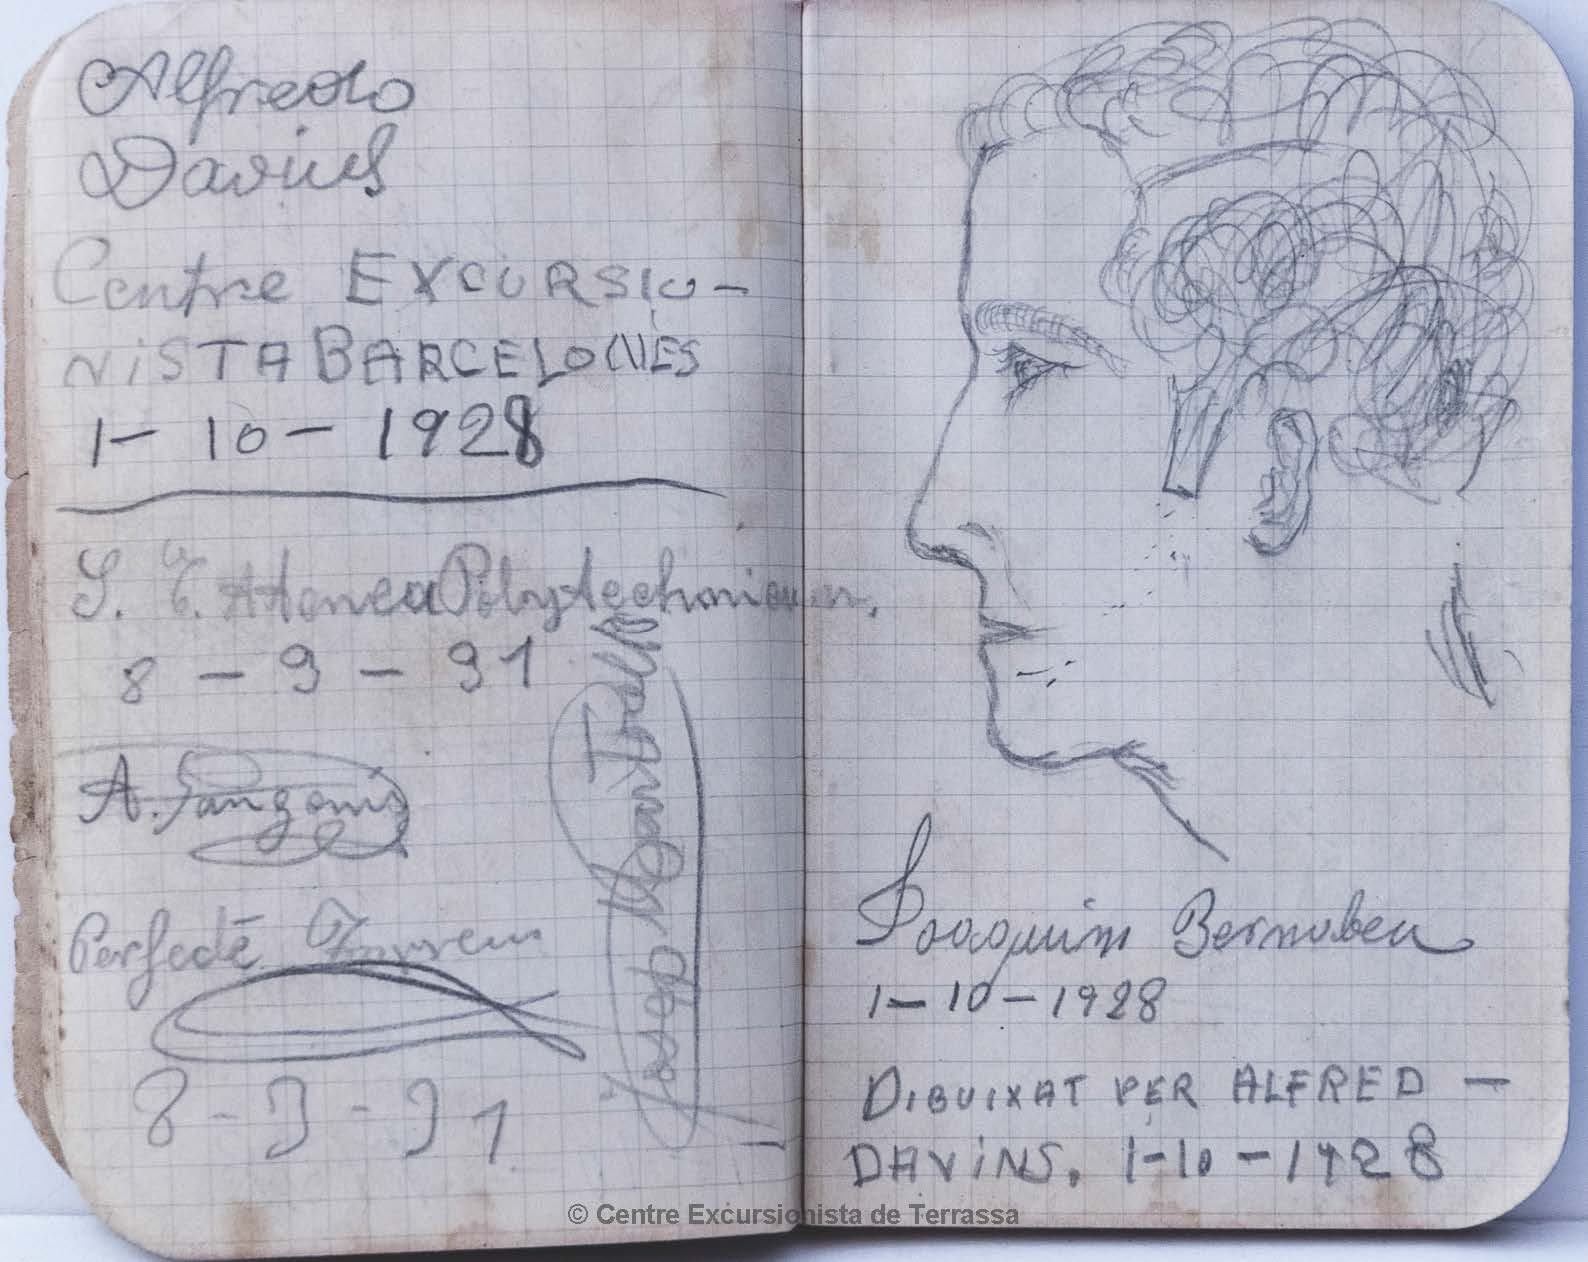 Alfredo
Davins
Centre EXCURSIO-
NISTA BARCELONES
1-10-1928
S. E. Atenea Polytechnicum.
8-9-31
A. Sangenis
Perfecte
8-9-31
Josep
Joaquim Bernabeu
1-10-1928
DIBUIXAT PER ALFRED -
DAVINS. 1-10-1928
© Centre Excursionista de Terrassa